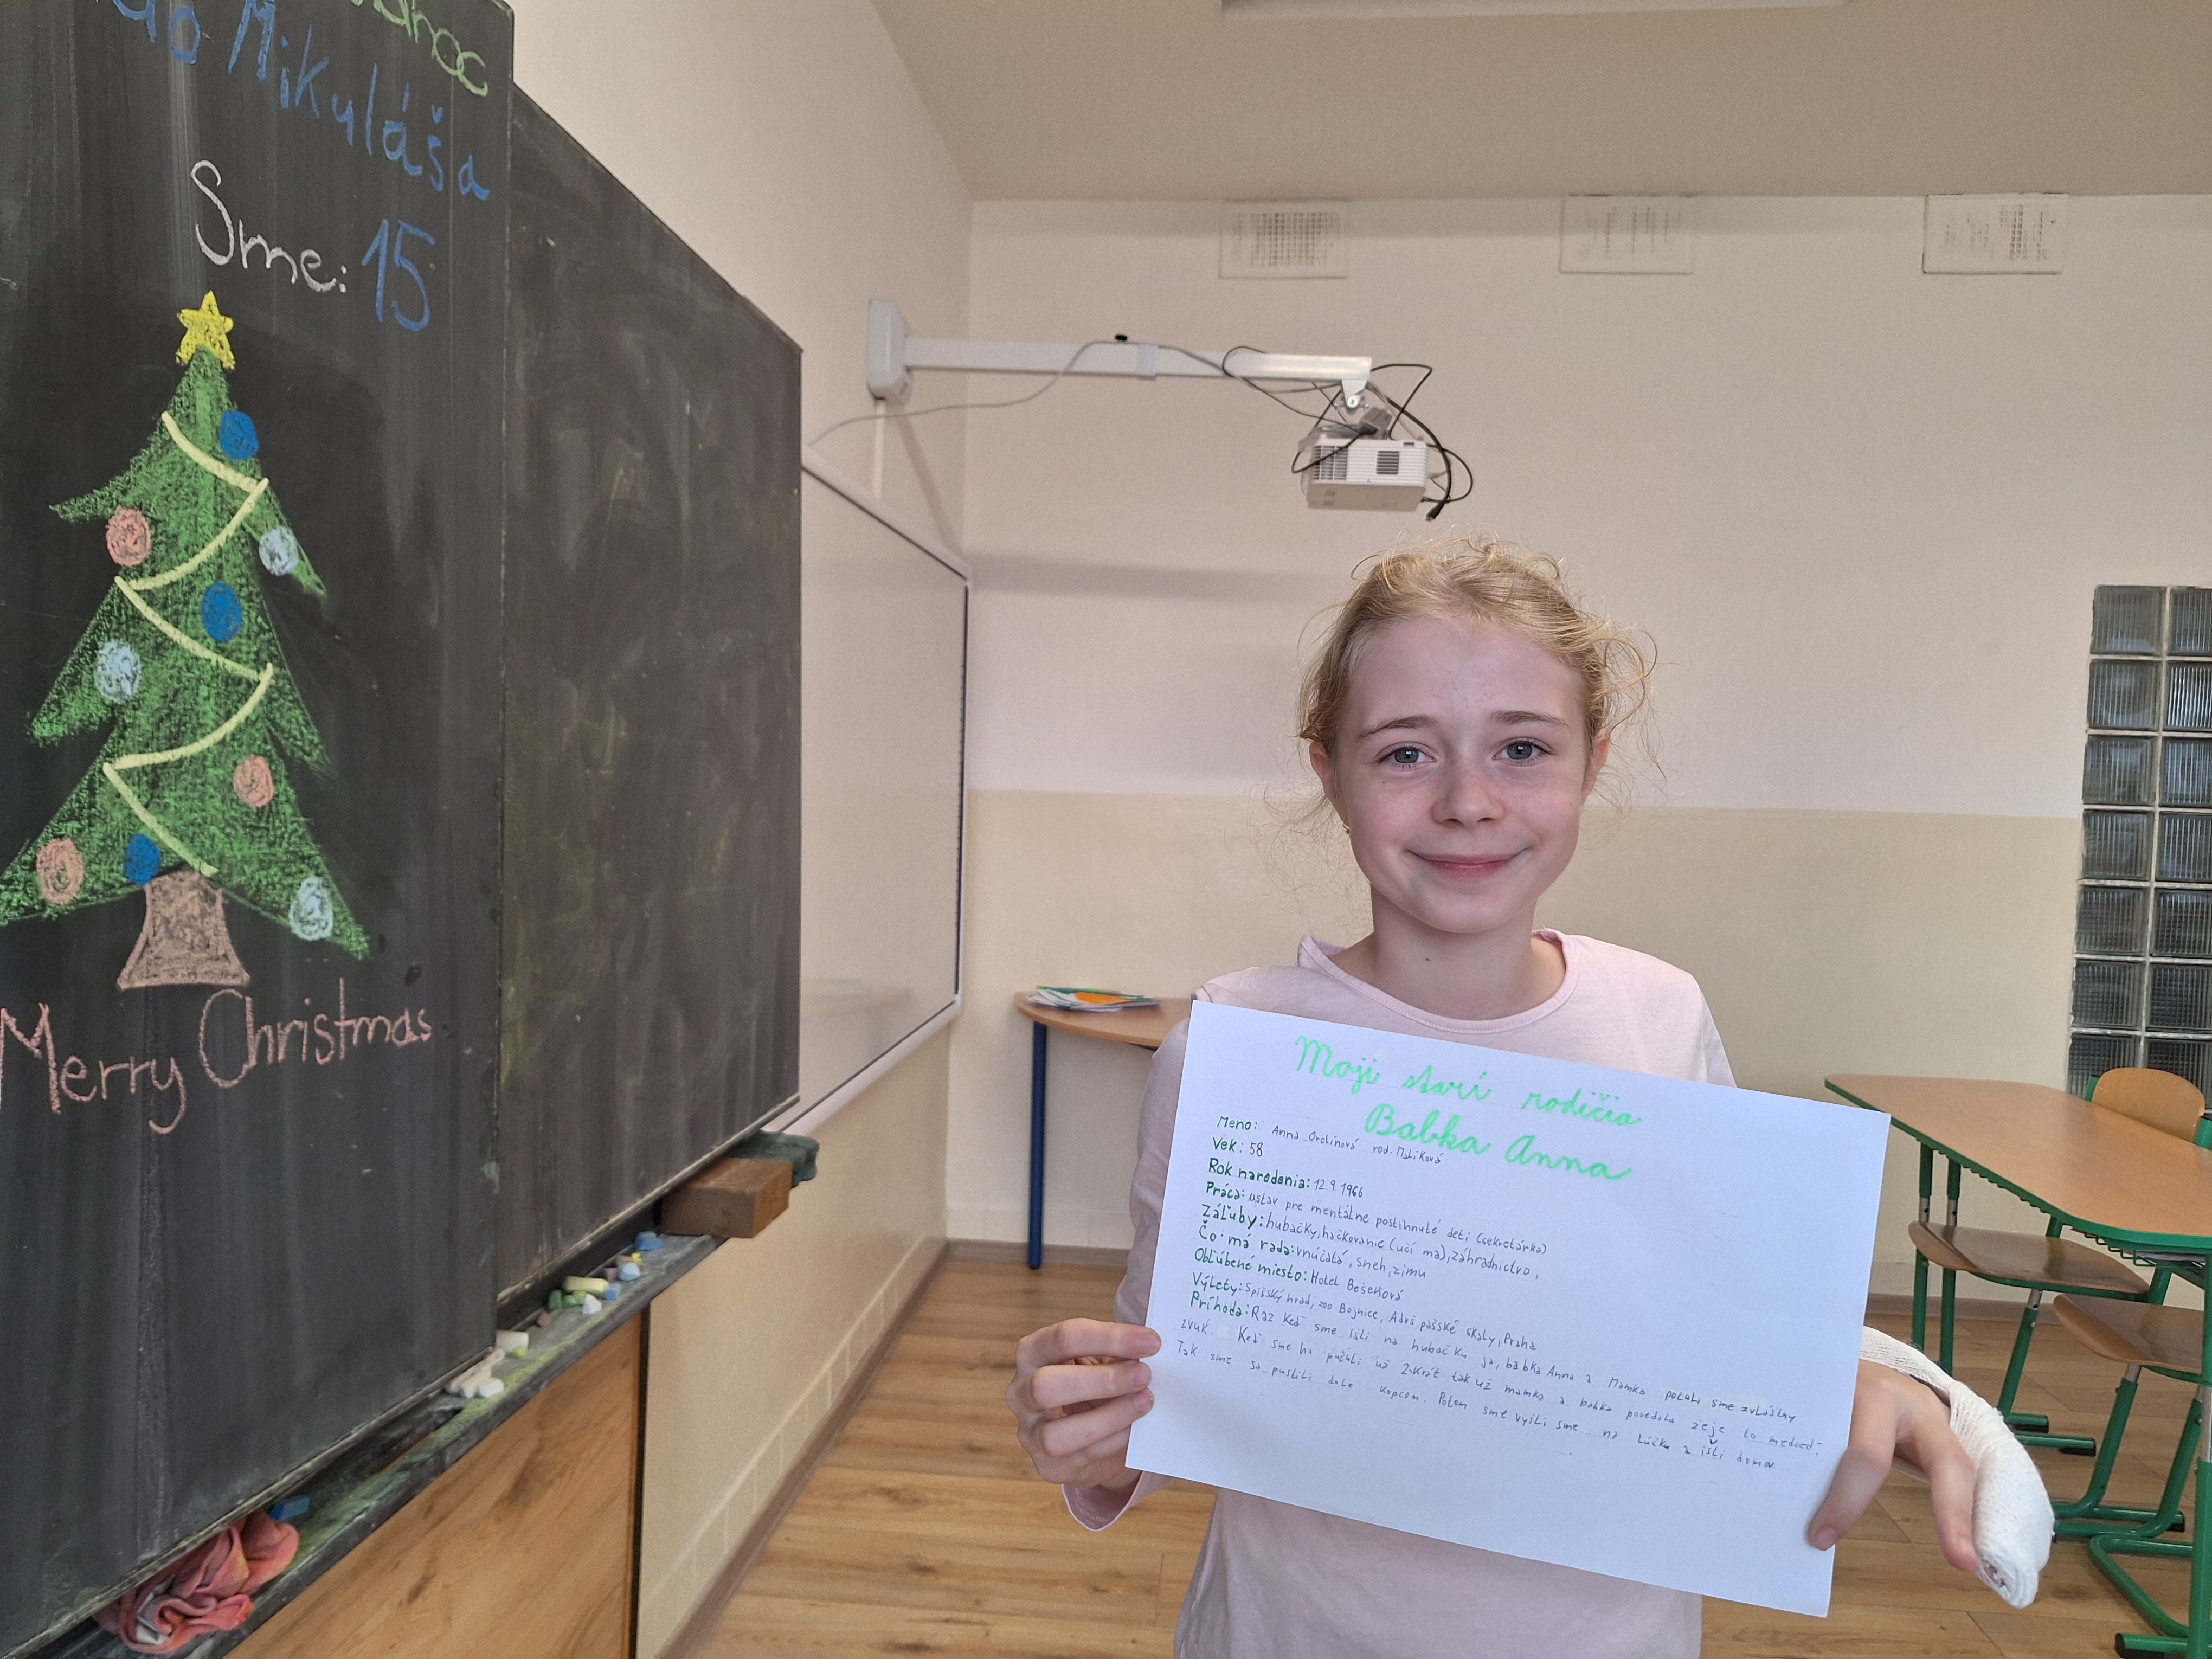 Mikuláša
Sme: 15
Merry Christmas
Moji starí rodičia
Babka Anna
Meno: Anna Orolínová rod. Maliková
Vek: 58
Rok narodenia: 12.9.1966
Práca: ustav pre mentálne postihnuté deti (sekretárka)
Záľuby: hubačky, hačkovanie (učí ma), záhradnictvo,
Čo má rada: vnúčatá, sneh, zimu
Obľúbené miesto: Hotel Bešeňová
Výlety: Spišský hrad, zoo Bojnice, Adršpašské skaly, Praha
Príhoda: Raz keď sme išli na hubačku ja, babka Anna a Mamka počuli sme zvláštny
zvuk. Keď sme ho počuli už 2-krát tak už mamka a babka povedala že je to medveď.
Tak sme sa pustili dole kopcom. Potom sme vyšli sme na lúčku a išli domov.